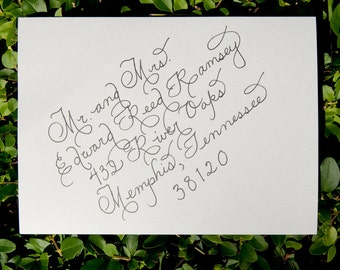 Mr. and Mrs.
Edward Reed Ramsey
432 River Oaks
Memphis, Tennessee
38120